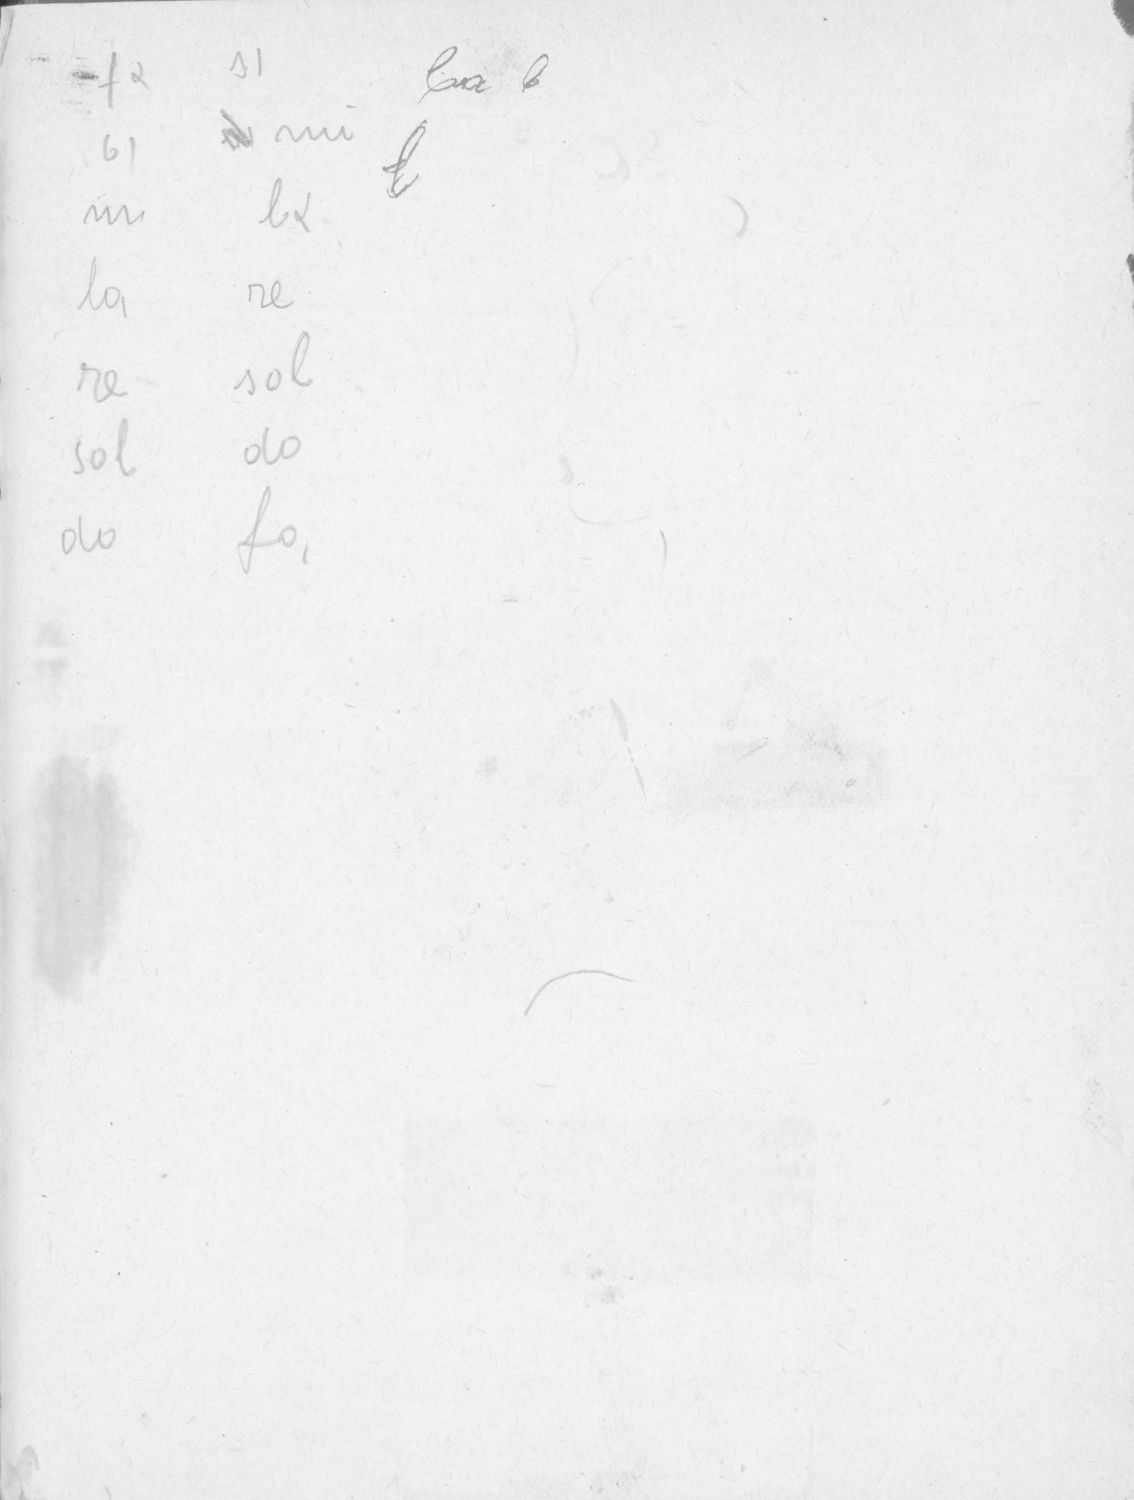 fa si
si mi
mi la
la re
re sol
sol do
do fa